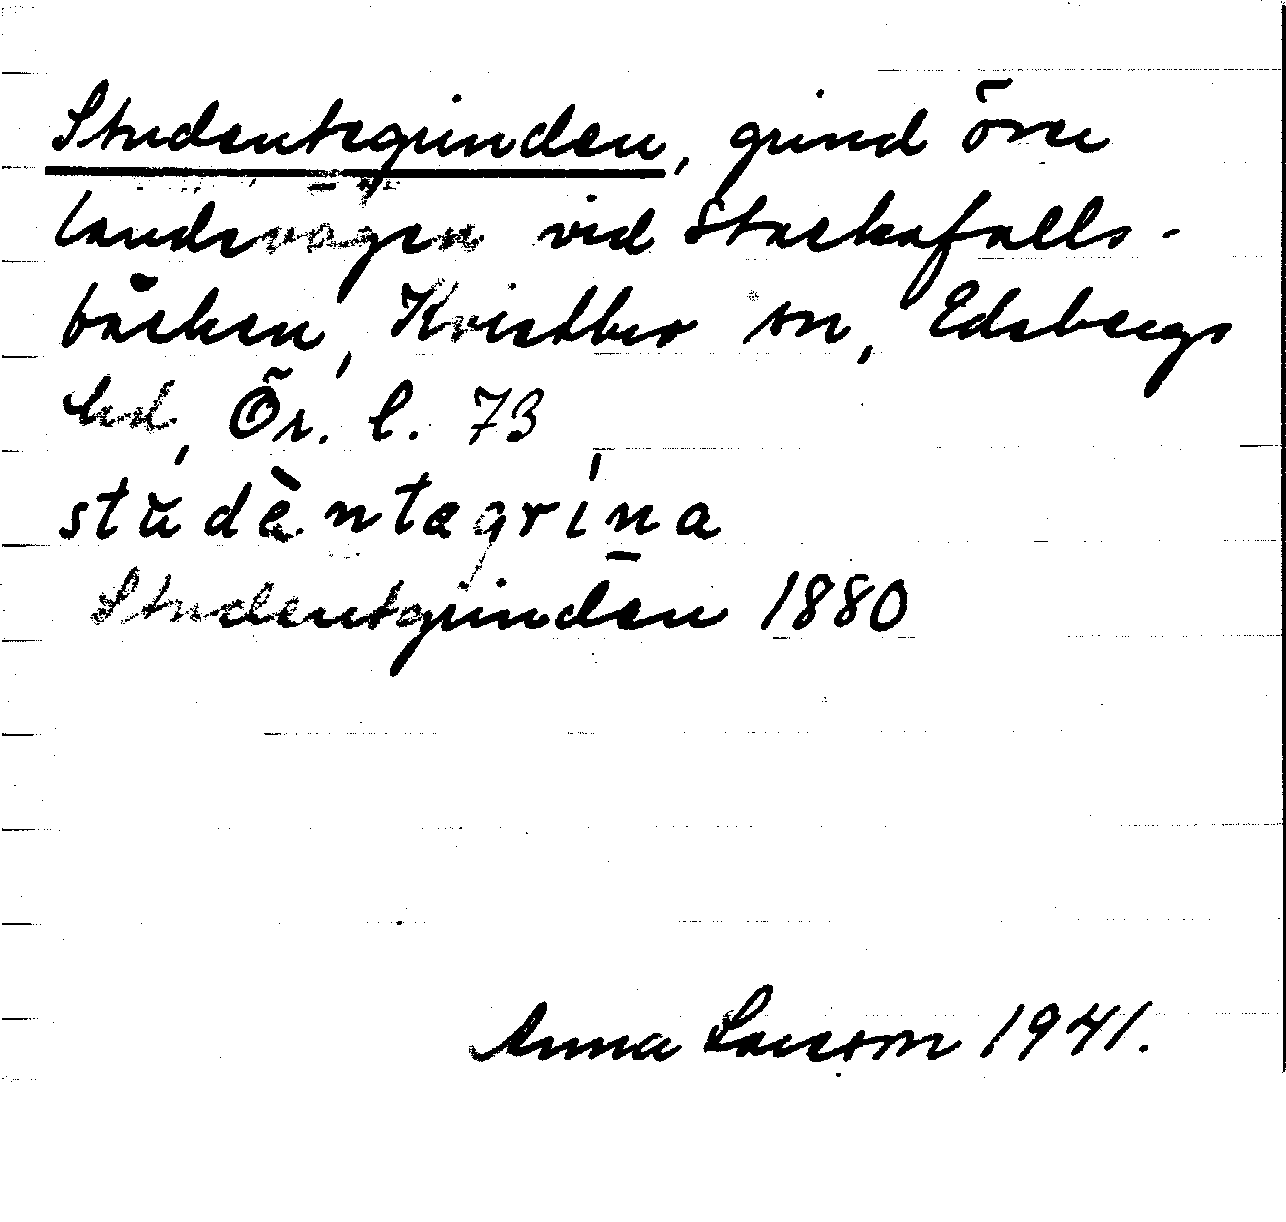 Studentsgrinden, grind över
landsvägen vid Stackafalls-
bäcken, Kvistbro sn, Edsbergs
hd, Ör. l. 73
studèntəgrína
Studentgrinden 1880
Anna Larsson 1941.